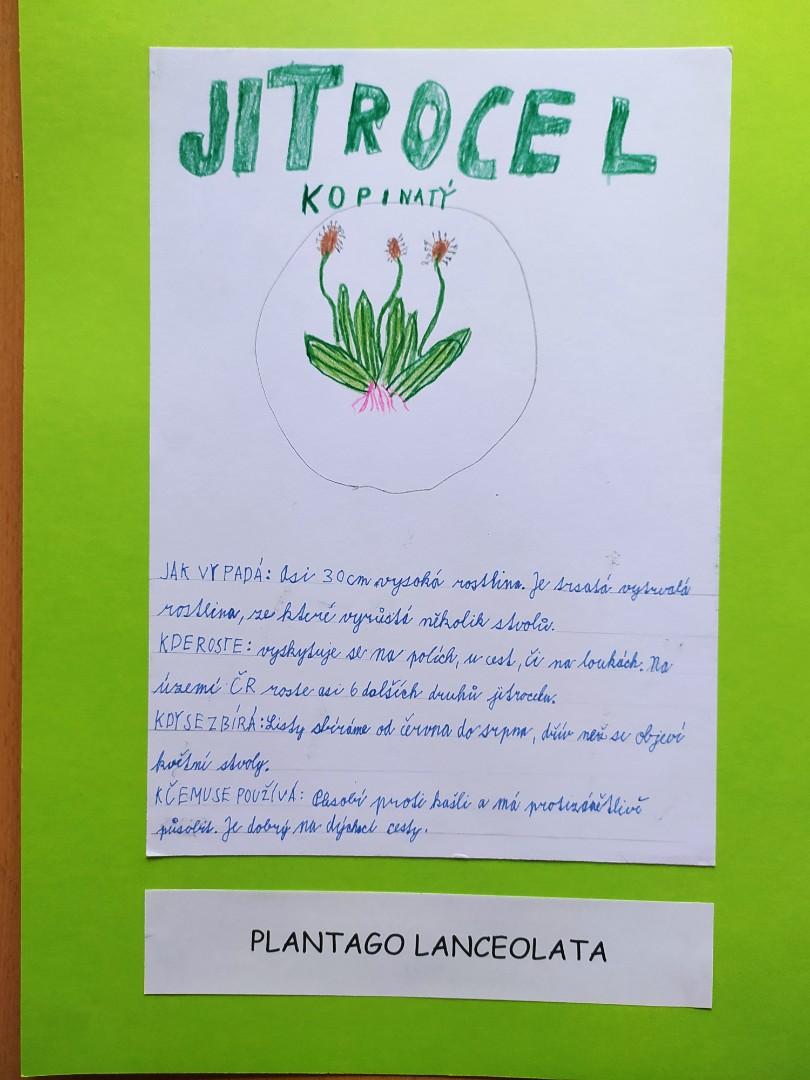 JITROCEL
KOPINATÝ
JAK VYPADÁ: Asi 30cm vysoká rostlina. Je trsatá vytrvalá
rostlina, ze které vyrůstá několik stvolů.
KDE ROSTE: vyskytuje se na polích, u cest, či na loukách. Na
území ČR roste asi 6 dalších druhů jitrocelu.
KDY SE ZBÍRÁ: Listy sbíráme od června do srpna, dřív než se objeví
květní stvoly.
K ČEMU SE POUŽÍVÁ: Působí proti kašli a má protizánětlivě
působit. Je dobrý na dýchací cesty.
PLANTAGO LANCEOLATA